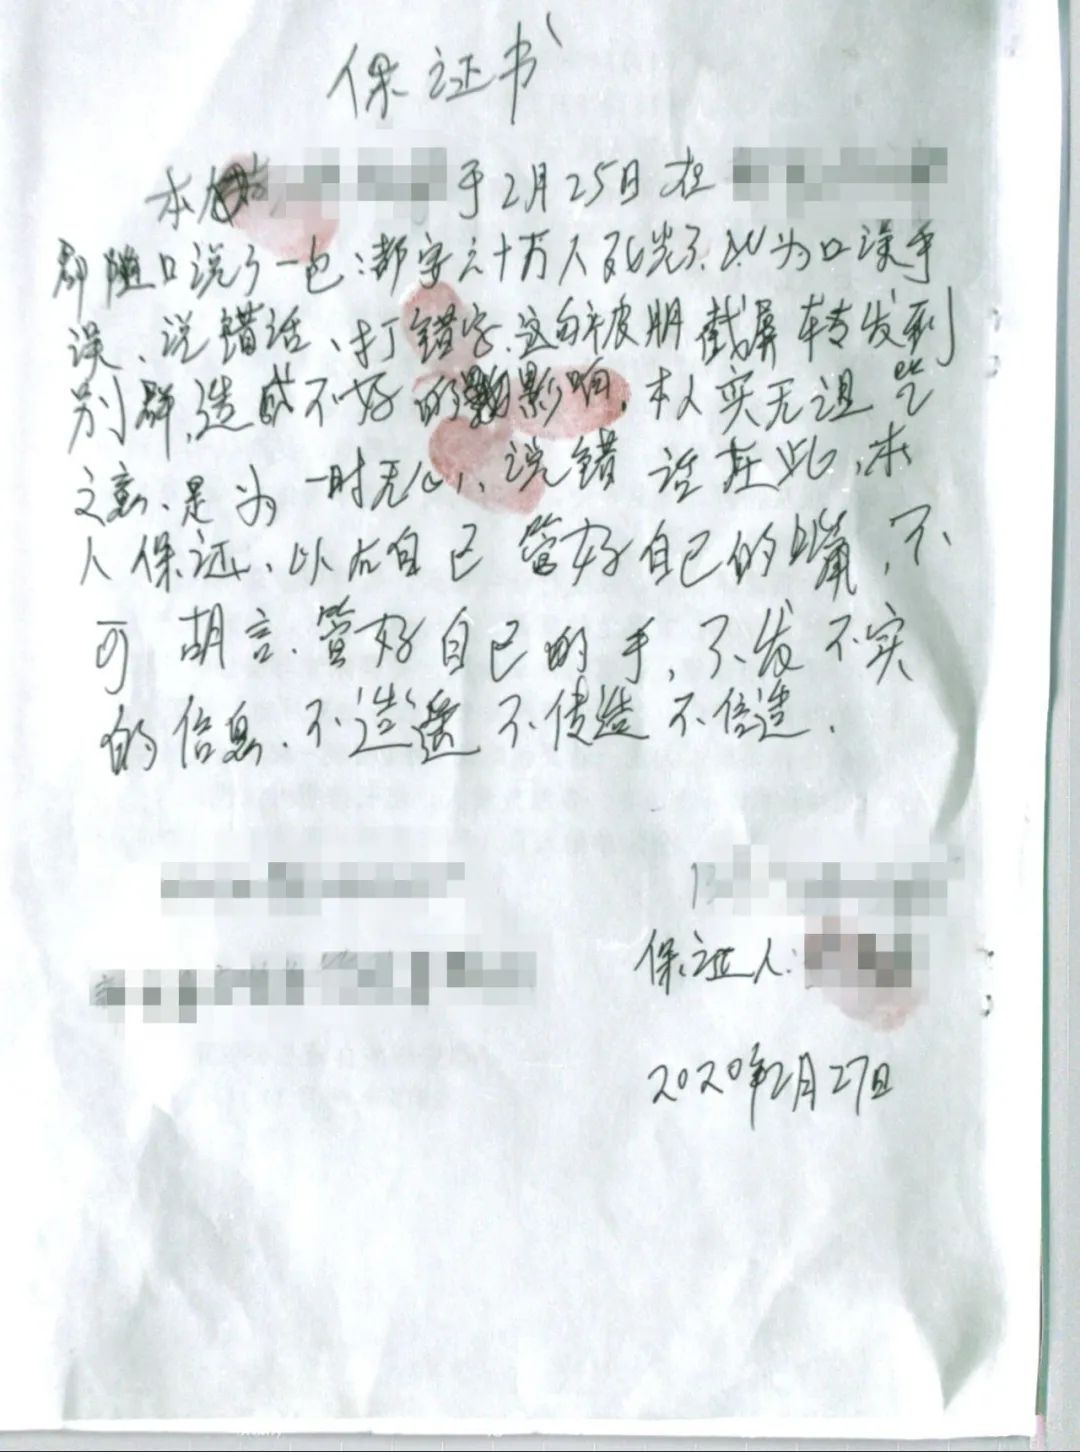 保证书
本人于2月25日在
群随口说了一句:都安六十万人死光了,此为口误手
误、说错话、打错字,这句被朋截屏转发到
别群,造成不好的影响,本人实无诅咒
之意、是为一时无心、说错话在此,本
人保证、以后自己管好自己的嘴,不
可胡言、管好自己的手,不发不实
的信息、不造谣不传谣不信谣.
保证人:
2020年2月27日